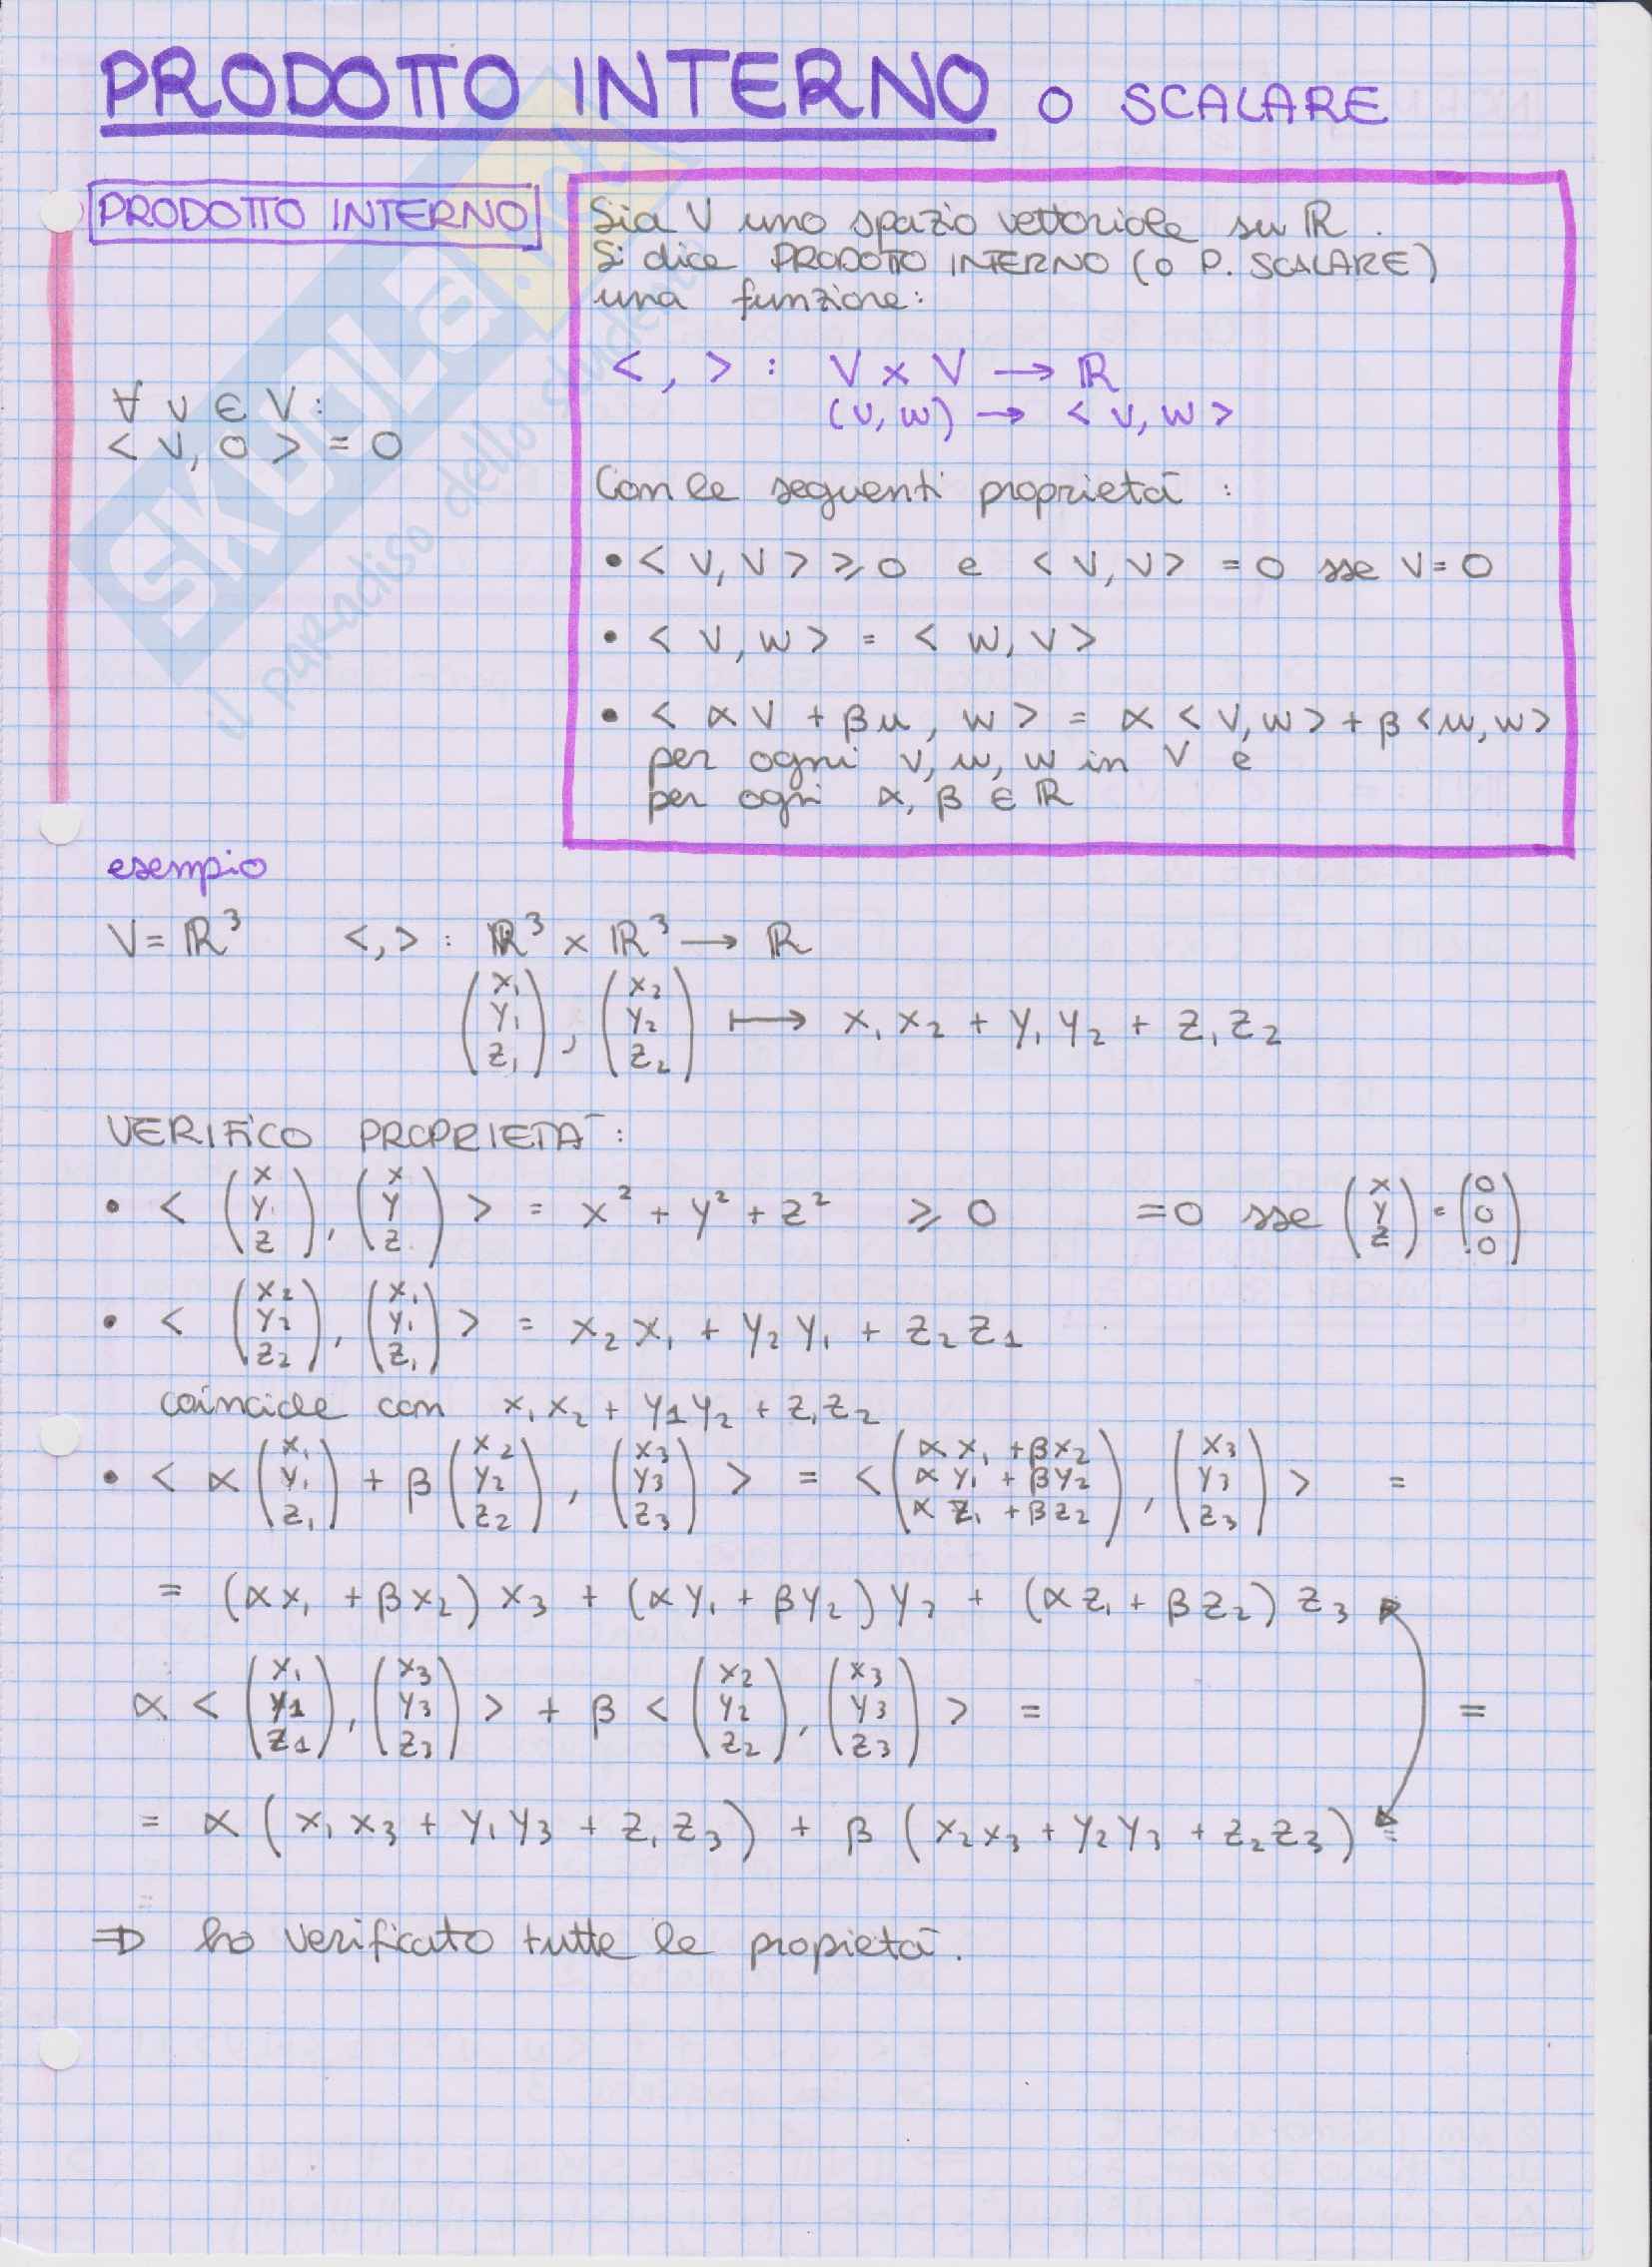 PRODOTTO INTERNO O SCALARE
PRODOTTO INTERNO
∀ v ∈ V:
< v, 0 > = 0
Sia V uno spazio vettoriale su ℝ.
Si dice PRODOTTO INTERNO (o P. SCALARE)
una funzione:
< , > : V x V → ℝ
(v, w) → < v, w >
Con le seguenti proprietà :
• < v, v > ⩾ 0 e < v, v > = 0 sse v = 0
• < v, w > = < w, v >
• < α v + β u , w > = α < v, w > + β < u, w >
per ogni v, u, w in V e
per ogni α, β ∈ ℝ
esempio
V = ℝ³ <,> : ℝ³ x ℝ³ → ℝ
(x₁ y₁ z₁), (x₂ y₂ z₂) ↦ x₁x₂ + y₁y₂ + z₁z₂
VERIFICO PROPRIETÀ :
• < (x y z), (x y z) > = x² + y² + z² ⩾ 0 = 0 sse (x y z) = (0 0 0)
• < (x₂ y₂ z₂), (x₁ y₁ z₁) > = x₂x₁ + y₂y₁ + z₂z₁
coincide con x₁x₂ + y₁y₂ + z₁z₂
• < α (x₁ y₁ z₁) + β (x₂ y₂ z₂), (x₃ y₃ z₃) > = < (αx₁ + βx₂ αy₁ + βy₂ αz₁ + βz₂), (x₃ y₃ z₃) > =
= (αx₁ + βx₂) x₃ + (αy₁ + βy₂) y₃ + (αz₁ + βz₂) z₃
α < (x₁ y₁ z₁), (x₃ y₃ z₃) > + β < (x₂ y₂ z₂), (x₃ y₃ z₃) > = =
= α (x₁x₃ + y₁y₃ + z₁z₃) + β (x₂x₃ + y₂y₃ + z₂z₃) =
⇒ ho verificato tutte le propietà.
SKUOLA.net
il paradiso dello studente